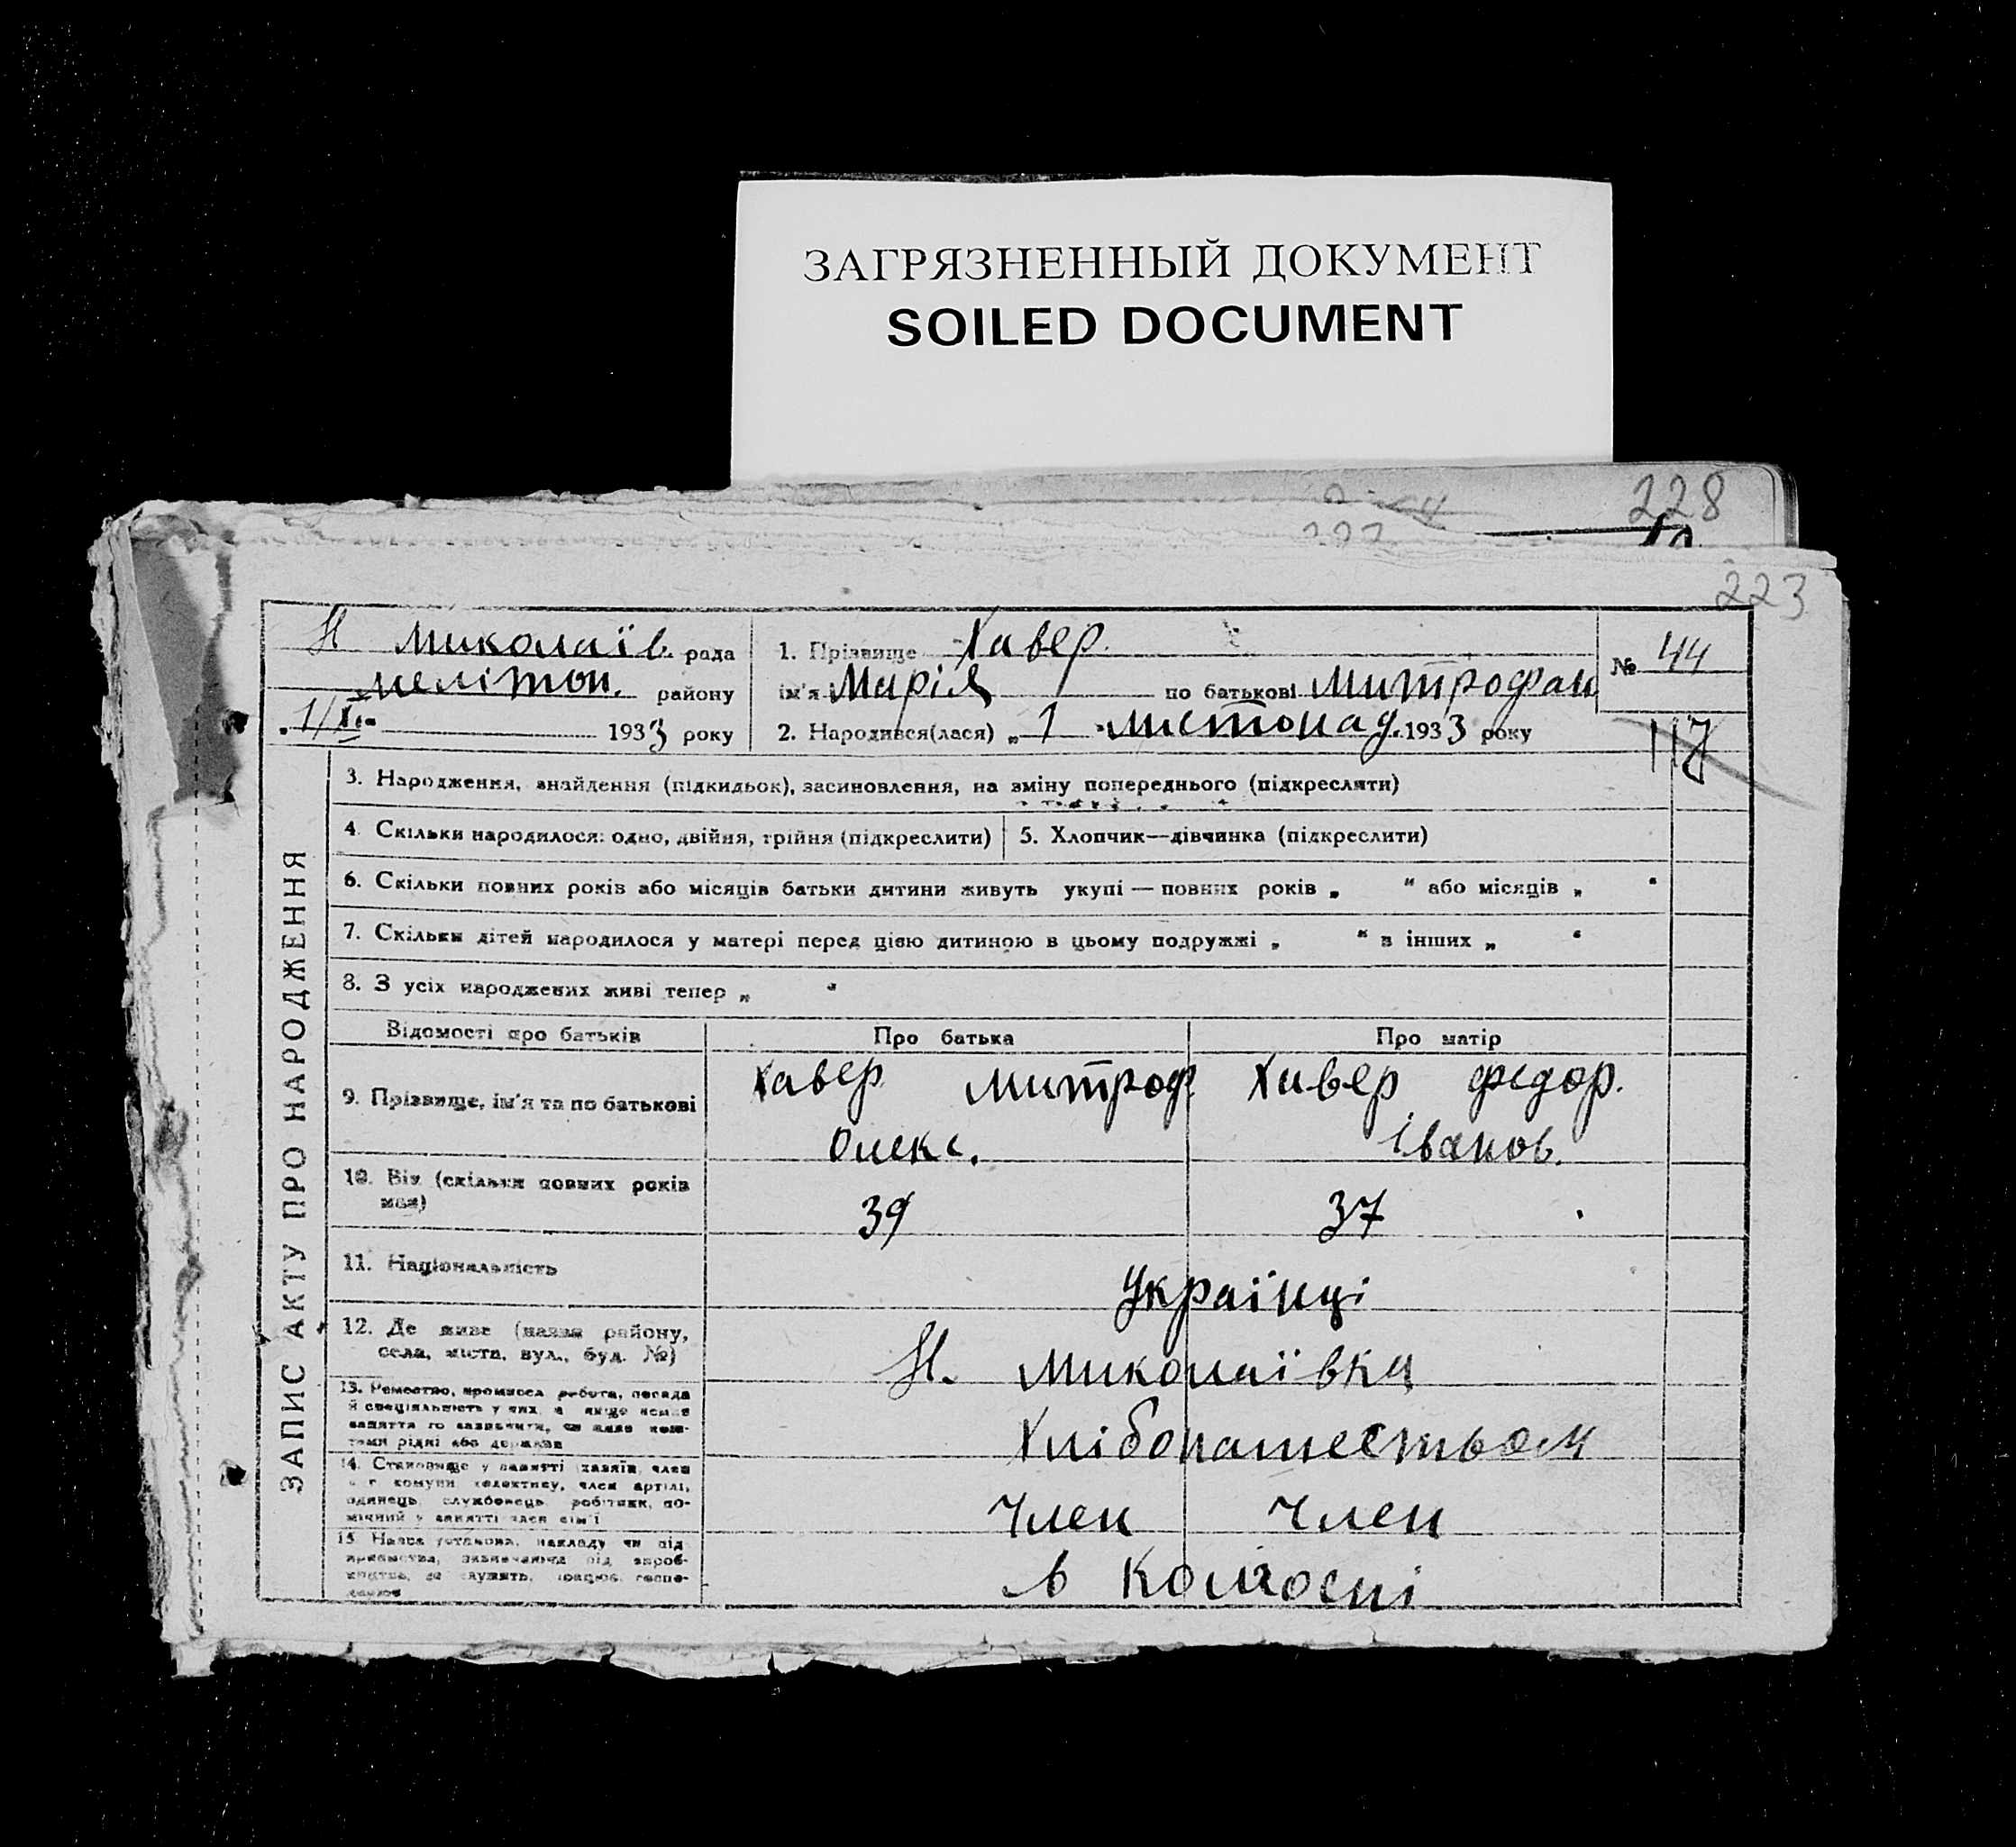 ЗАГРЯЗНЕННЫЙ ДОКУМЕНТ
SOILED DOCUMENT
228
223
Н Миколаїв. рада
меліton. району
1/XI 1933 року
1. Прізвище Хавер.
ім'я Марія по батькові Митрофан
2. Народився(лася) „ 1 " листопад. 1933 року
№ 44
117
ЗАПИС АКТУ ПРО НАРОДЖЕННЯ
3. Народження, знайдення (підкидьок), засиновлення, на зміну попереднього (підкреслити)
4. Скільки народилося: одно, двійня, трійня (підкреслити)
5. Хлопчик—дівчинка (підкреслити)
6. Скільки повних років або місяців батьки дитини живуть укупі — повних років „ " або місяців „ "
7. Скільки дітей народилося у матері перед цією дитиною в цьому подружжі „ " в інших „ "
8. З усіх народжених живі тепер „ "
Відомості про батьків Про батька Про матір
9. Прізвище, ім'я та по батькові
Хавер Митроф. Хавер Федор.
Олекс. Іванов.
10. Вік (скільки повних років має)
39 37
11. Національність
Українці
12. Де живе (назва району,
села, міста, вул., буд. №)
Н. Миколаївка
13. Ремество, промисел робота, посада
й спеціальність у них, а якщо немає
Хлібопашеством
14. Становище у занятті хазяїн, член
комуни колективу, член артілі,
одинець службовець робітник, по-
мічний у занятті член сім'ї
Член Член
15. Назва установи, накладу чи під
в колгоспі